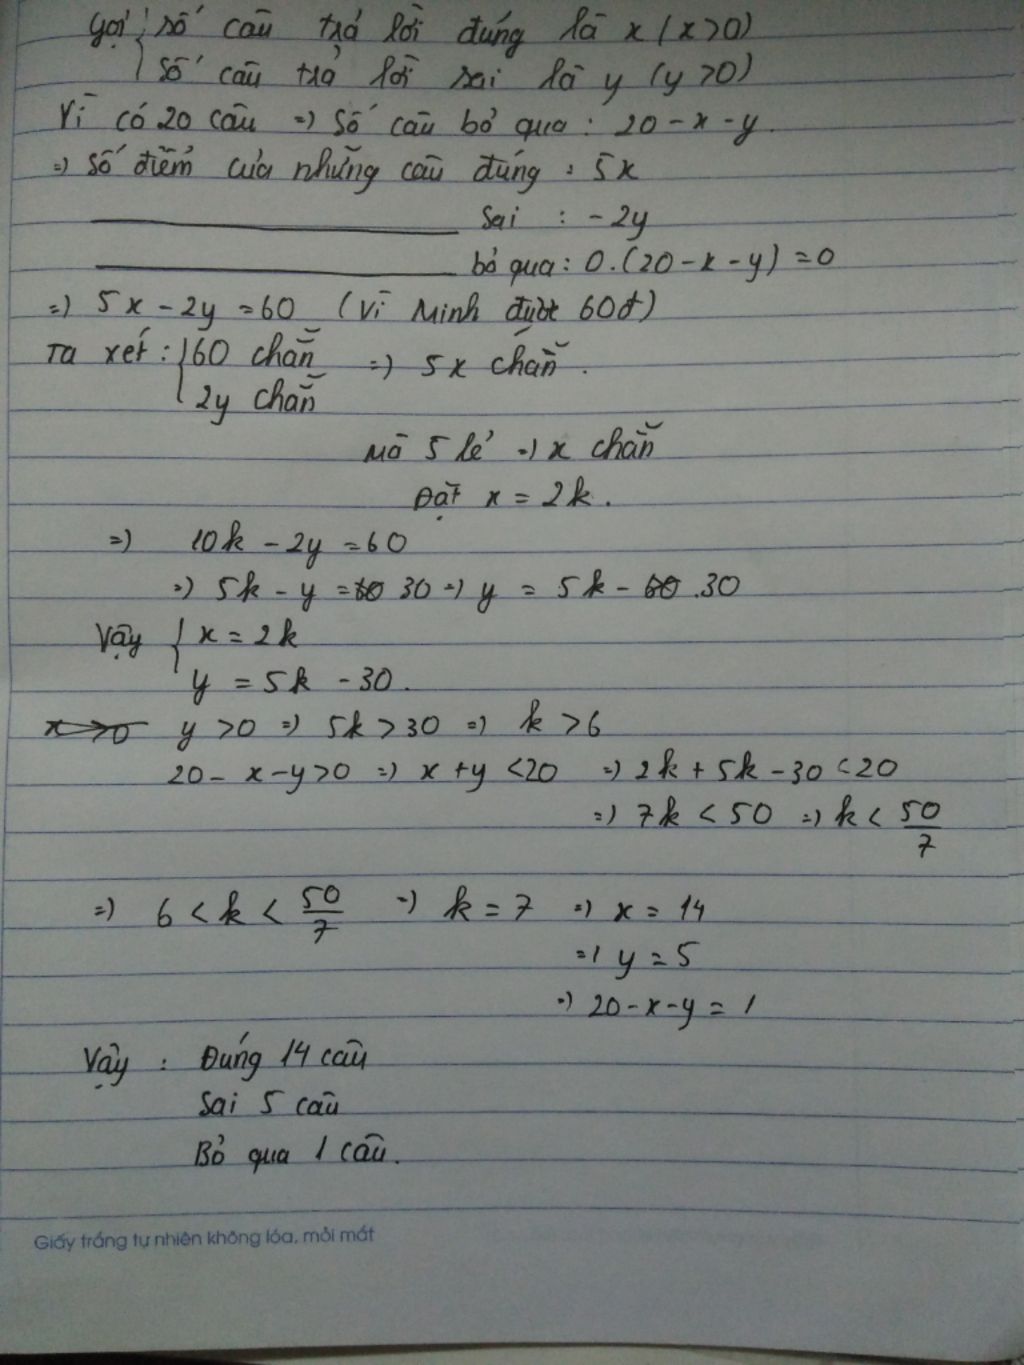 Gọi { số câu trả lời đúng là x (x>0)
số câu trả lời sai là y (y>0)
Vì có 20 câu => số câu bỏ qua : 20 - x - y.
=> số điểm của những câu đúng : 5x
sai : -2y
bỏ qua : 0.(20 - x - y) = 0
=> 5x - 2y = 60 (Vì Minh được 60đ)
Ta xét : { 60 chẵn => 5x chẵn .
2y chẵn
Mà 5 lẻ => x chẵn
Đặt x = 2k .
=> 10k - 2y = 60
=> 5k - y = 30 => y = 5k - 30
Vậy { x = 2k
y = 5k - 30 .
x>0 y >0 => 5k > 30 => k > 6
20 - x - y > 0 => x + y < 20 => 2k + 5k - 30 < 20
=> 7k < 50 => k < 50/7
=> 6 < k < 50/7 => k = 7 => x = 14
=> y = 5
=> 20 - x - y = 1
Vậy : Đúng 14 câu
Sai 5 câu
Bỏ qua 1 câu.
Giấy trắng tự nhiên không lóa, mỏi mắt